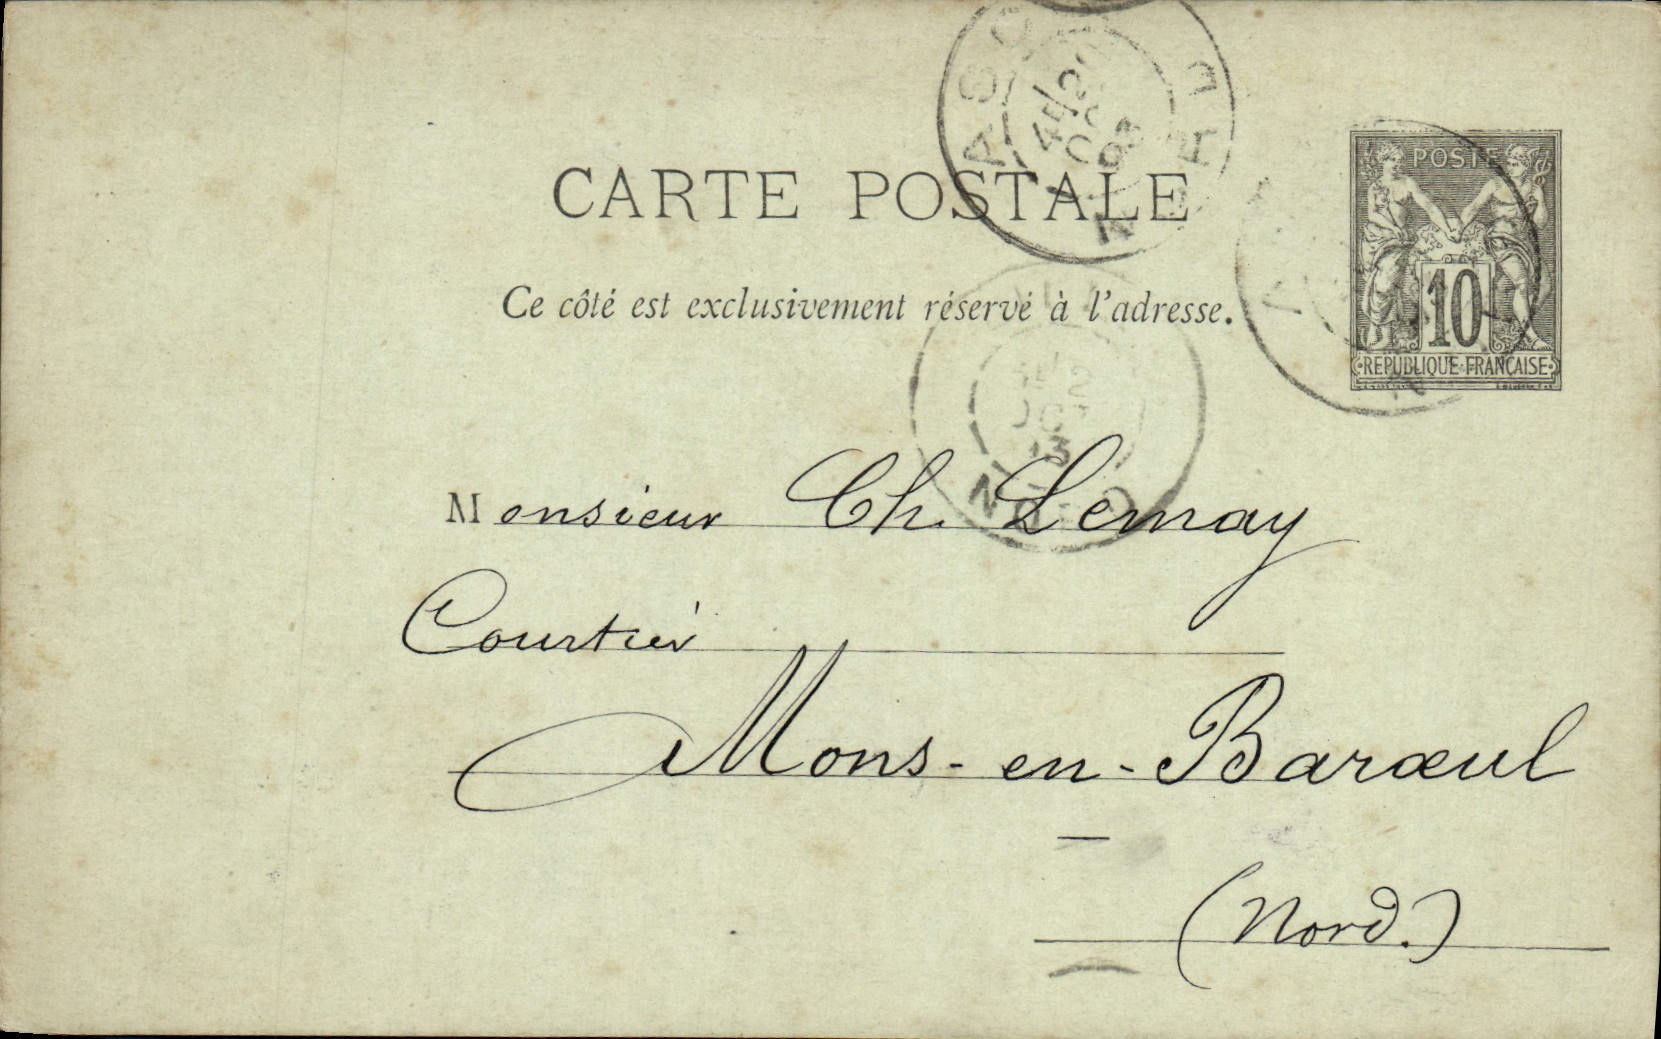 CARTE POSTALE
Ce côté est exclusivement réservé à l'adresse.
POSTE
10
RÉPUBLIQUE FRANÇAISE
Monsieur Ch. Lemay
Courtier
Mons-en-Barœul
(Nord.)